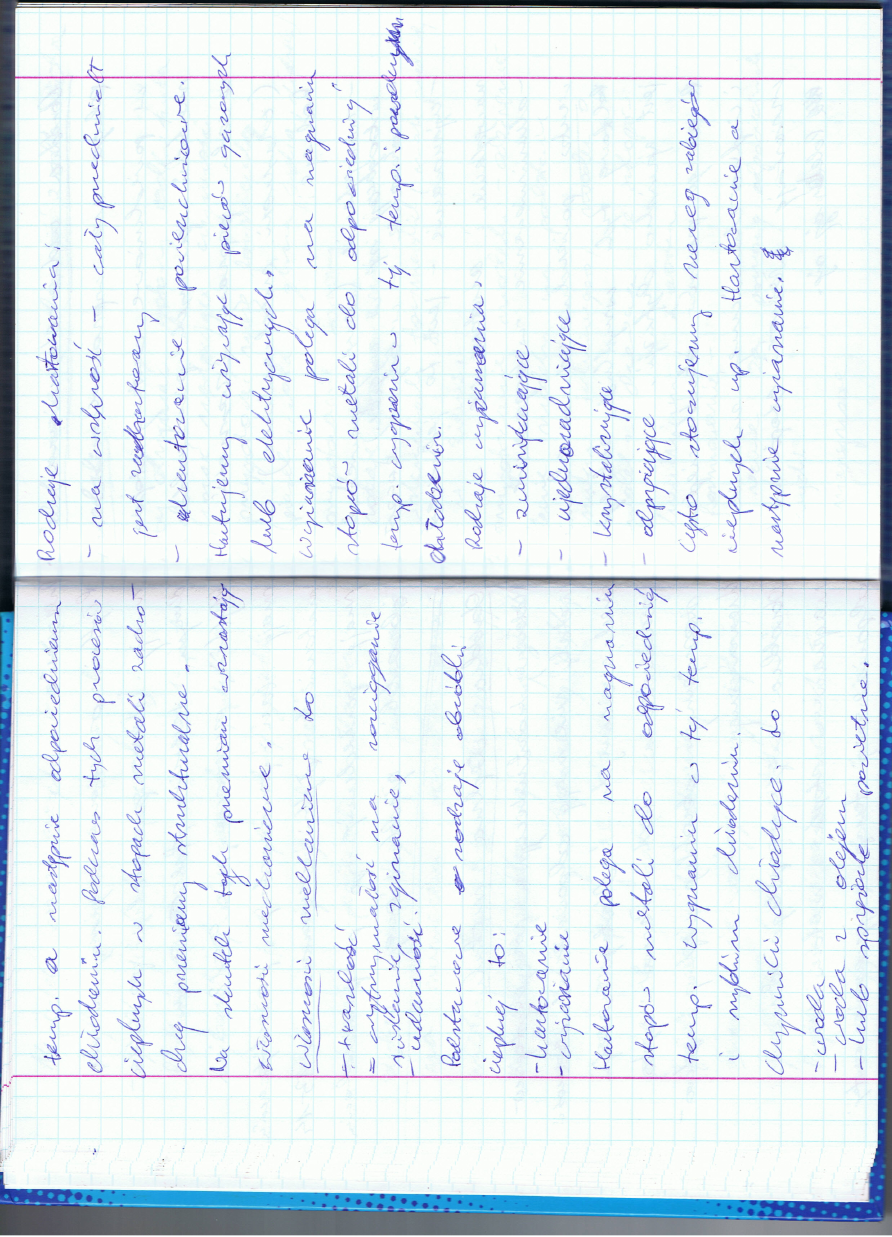 temp. a następnie odpowiedniem
chłodzeniu. Podczas tych procesów
cieplnych w stopach metali zacho-
dzą przemiany strukturalne.
Na skutek tych przemian wzrastają
własności mechaniczne.
Własności mechaniczne to
- twardość
- wytrzymałość na rozciąganie
ściskanie, zginanie,
- udarność.
Podstawowe rodzaje obróbki
cieplnej to:
- hartowanie
- wyżarzanie
Hartowanie polega na nagrzaniu
stopów metali do odpowiedniej
temp. wygrzaniu w tej temp.
i szybkim chłodzeniu.
Czynniki chłodzące to
- woda
- woda z olejem
- lub sprężone powietrze.
Rodzaje hartowania:
- na wskroś - cały przedmiot
jest zahartowany
- hartowanie powierzchniowe.
Hartujemy używając pieców gazowych
lub elektrycznych.
Wyżarzanie polega na nagrzaniu
stopów metali do odpowiedniej
temp. wygrzaniu w tej temp. i
chłodzeniu.
Rodzaje wyżarzania.
-
- ujednoradniające
- krystalizujące
- odprężające
Często stosujemy szereg zabiegów
cieplnych np. Hartowanie a
następnie wyżarzanie.